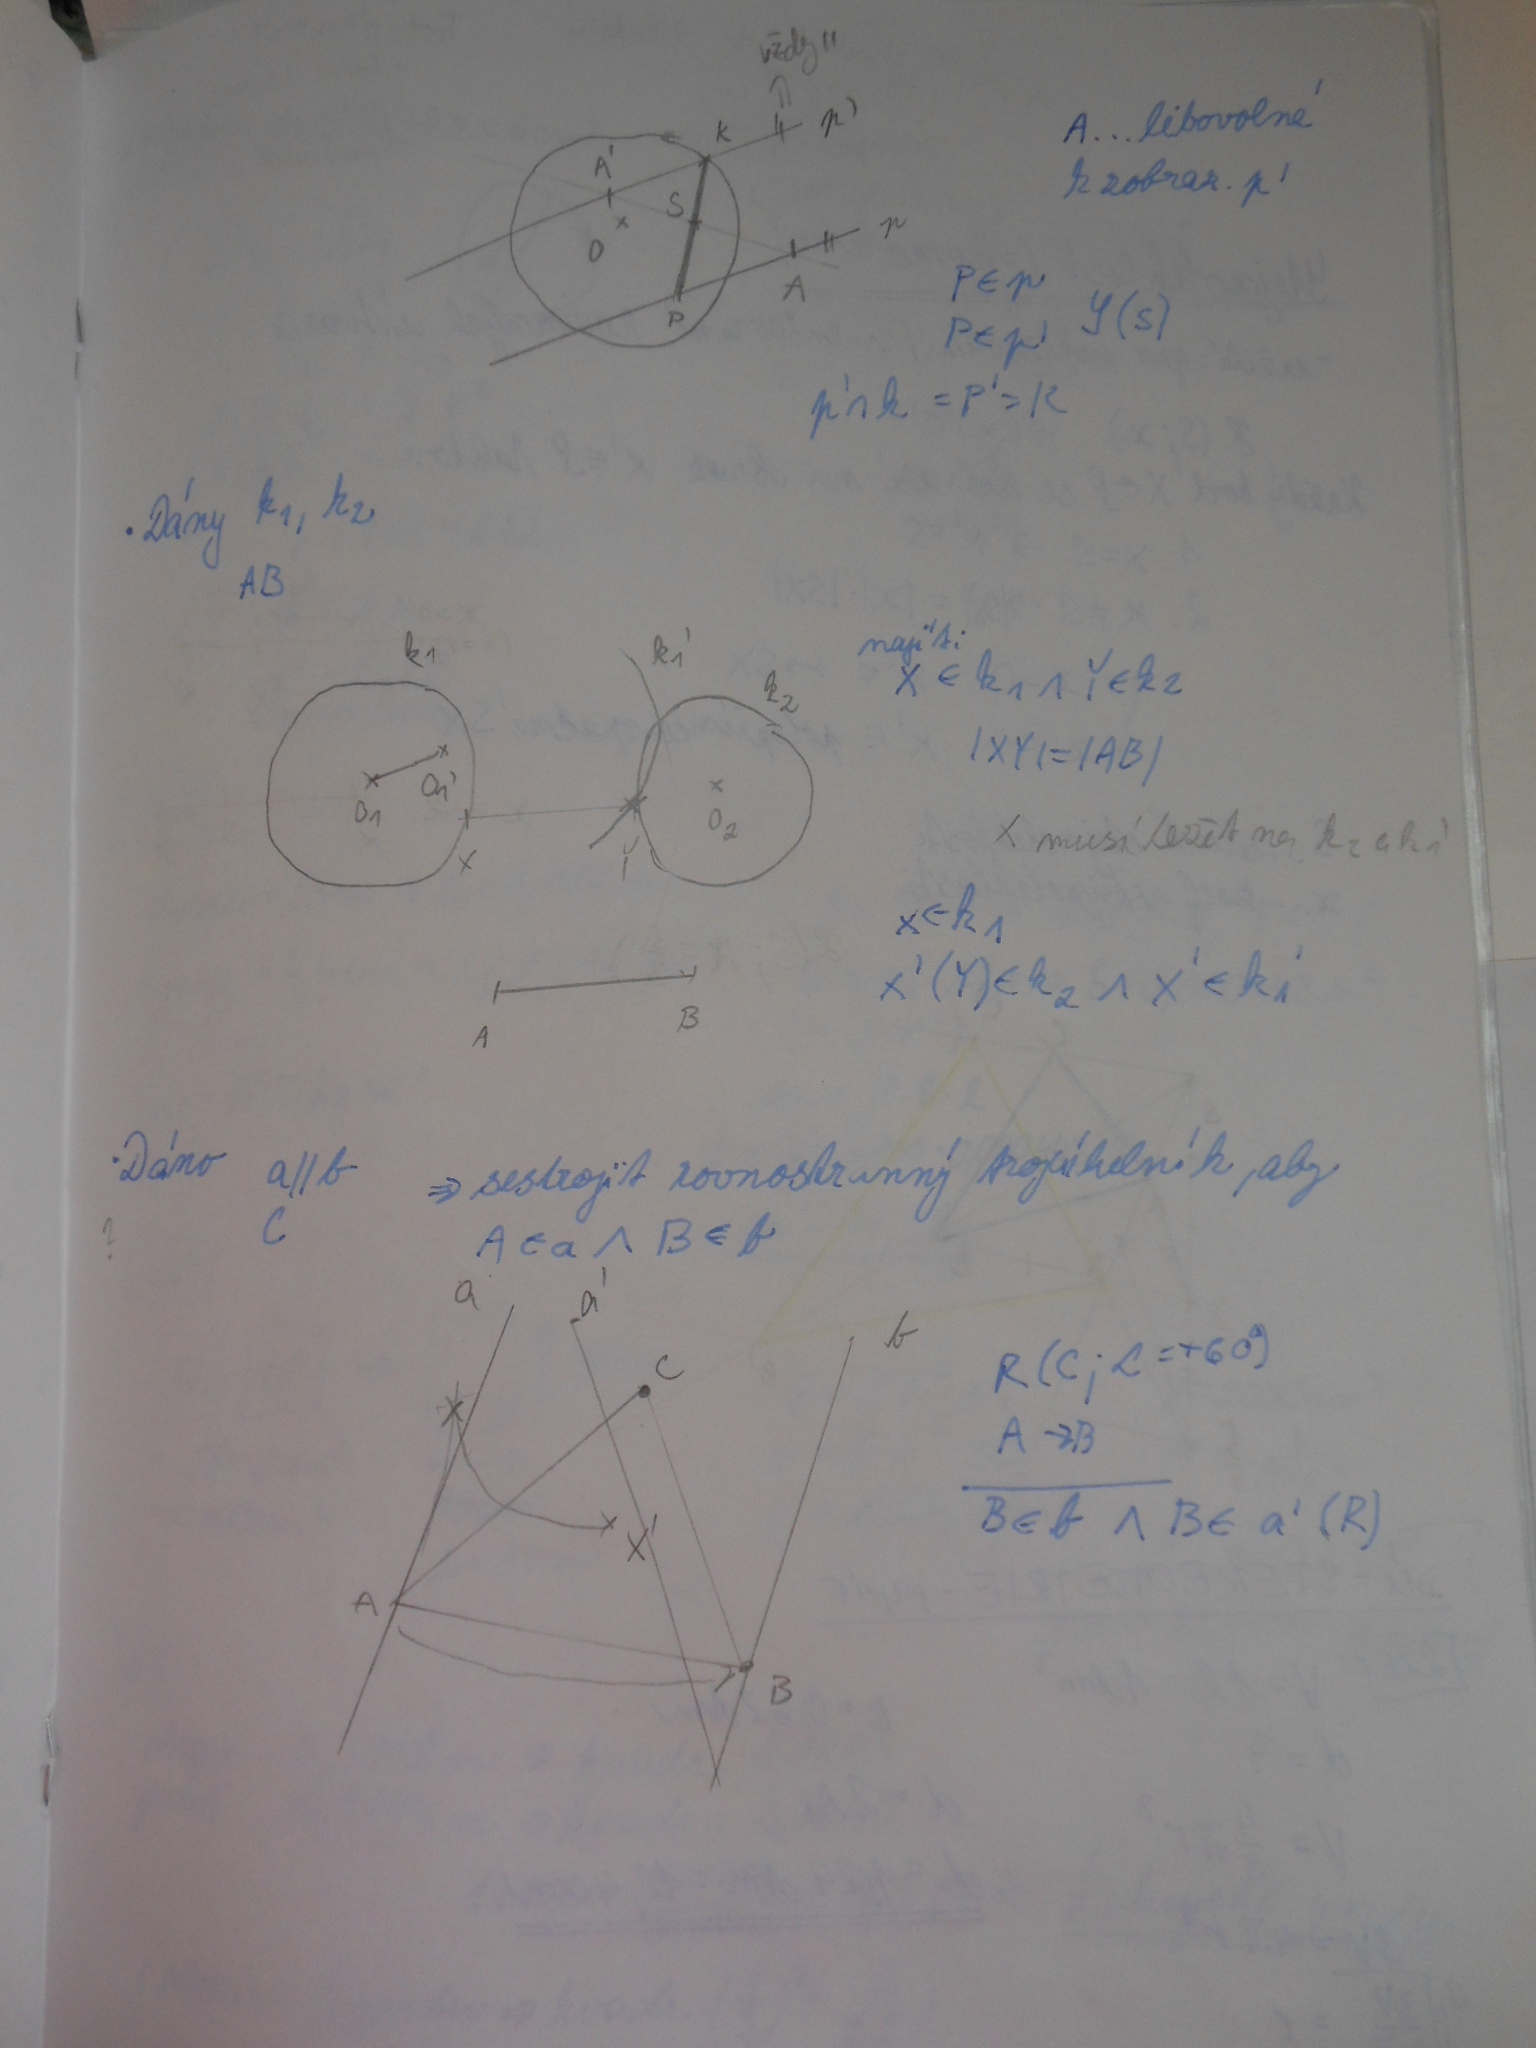 vždy ||
k p'
A'
S
O
p
A
P
A...libovolné
k zobraz. p'
P ∈ p
P ∈ p' Y(S)
p' ∩ k = P' = K
• Dány k1, k2
AB
k1 k1' k2
O1 O1' O2
X Y
A B
najít:
X ∈ k1 ∧ Y ∈ k2
|XY| = |AB|
X musí ležet na k2 a k1'
x ∈ k1
x'(Y) ∈ k2 ∧ X' ∈ k1'
• Dáno a || b ⇒ sestrojit rovnostranný trojúhelník, aby
? C A ∈ a ∧ B ∈ b
a a' b
C
X'
A
B
R(C; α = +60°)
A → B
B ∈ b ∧ B ∈ a' (R)